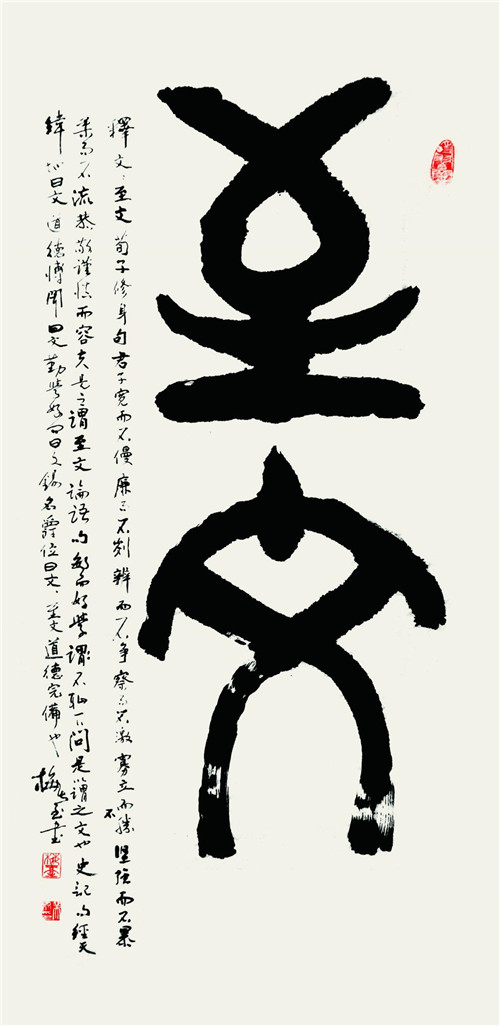 至文
釋文：至文荀子修身句君子寬而不僾廉而不刿辯而不争察而不激寡立而不勝堅强而不暴
柔而不流恭敬謹慎而容夫是之謂至文論語句敏而好學謂不耻下問是謂之文也史記句經天
緯地曰文道德博聞曰文勤學好問曰文錫名爵位曰文、至文道德完備也
書